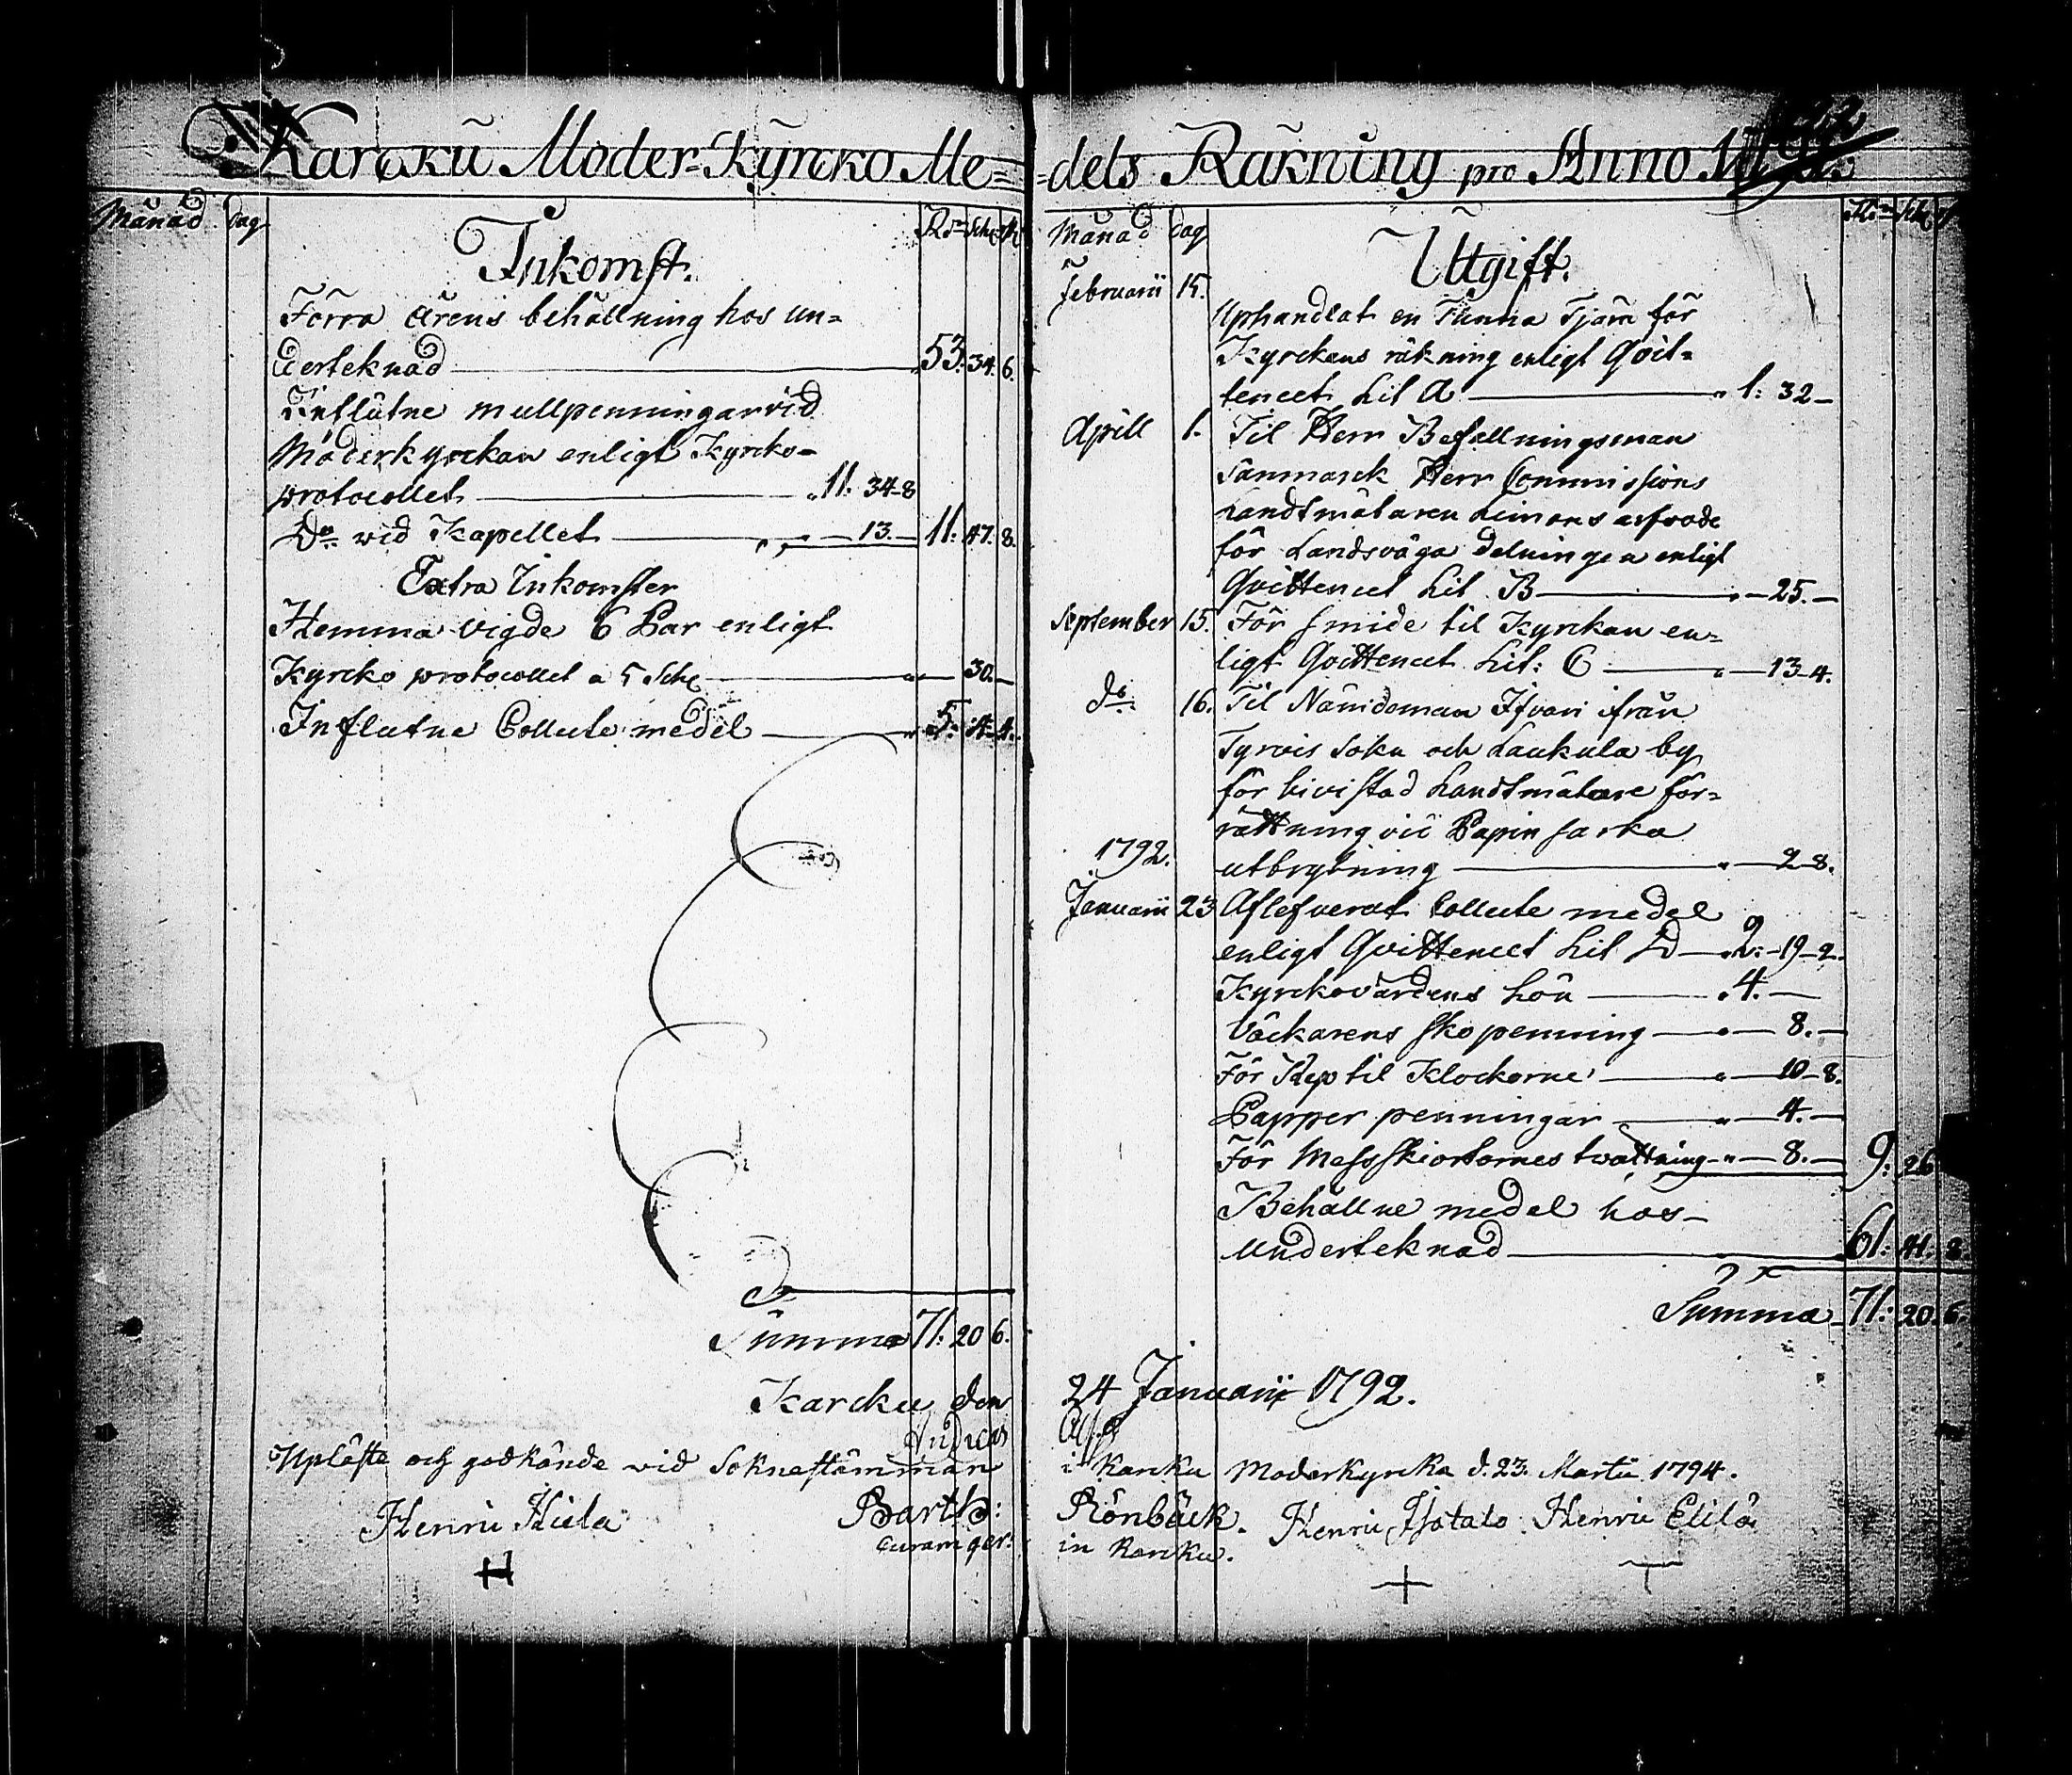 Karcku Moder-Kyrcko Me=
Månad dag Rdr Sch
Inkomst.
Förra årens behållning hos un=
derteknad 53. 34. 6.
Influtne mullpenningar vid
Moderkyrckan enligt Kyrcko=
protocollet 11. 34-8
Do vid Kapellet — 13. — 11. 47. 8.
Extra Inkomster
Hemma vigde 6 Par enligt
Kyrcko protocollet a 5 Sch — 30. —
Influtne Collecte medel 5. 4. 4.
Summa 71: 20 6.
Karcku den
Andreas
Upläste och godkände vid Soknestämman
Henric Hiela Barth:
curam ger:
H
=dels Räkning pro Anno
Månad dag Rdr Sch
Utgift.
Februarii 15.
Uphandlat en Tunna Tjära för
Kyrckans räkning enligt Qvit=
tencet Lit A 1: 32 —
Aprill 1. Til Herr Befallningsman
Sanmarck Herr Commissions
Landtmätaren Limons arfvode
för Landsväga delningen enligt
Qvittencet Lit B — 25. —
September 15. För smide til Kyrckan en=
ligt Qvittencet Lit: C — 13-4.
do 16. Til Nämdeman Ifvari ifrån
Tyrvis Sokn och Laukula by
för bivistad Landtmätare för=
rättning vid Papin sarka
1792. utbrytning — 2 8.
Januarii 23 Aflefverat Collecte medel
enligt Qvittencet Lit D 2: -19-2.
Kyrckovärdens Lön 4. —
Väckarens skopenning — 8. —
För Rep til Klockorne — 10-8.
Papper penningar — 4. —
För Messskiortornes tvättning — 8. — 9: 26
Behållne medel hos
underteknad 61: 41. 8.
Summa 71: 20. 6.
24 Januarii 1792.
i Karcku Moderkyrcka d. 23. Martii 1794.
Rönbäck. Henric Isotalo Henric Elilä
in Karcku.